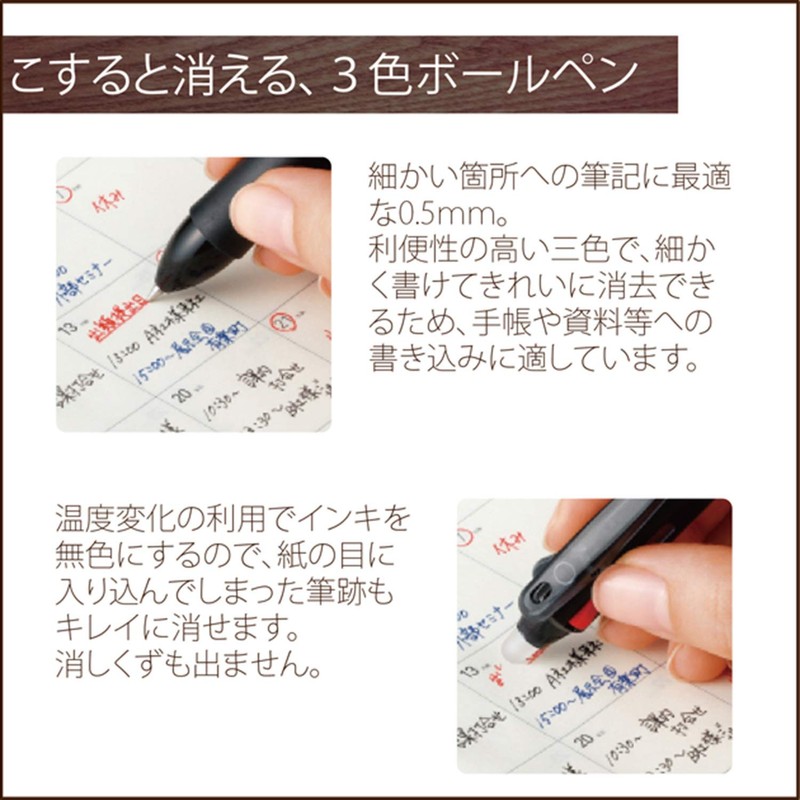 こすると消える、3色ボールペン
細かい箇所への筆記に最適
な0.5mm。
利便性の高い三色で、細か
く書けてきれいに消去でき
るため、手帳や資料等への
書き込みに適しています。
13
13:00
15:00~展示会
20
10:30~
21
温度変化の利用でインキを
無色にするので、紙の目に
入り込んでしまった筆跡も
キレイに消せます。
消しくずも出ません。
セミナー
13
13:00
15:00~展示会
20
10:30~